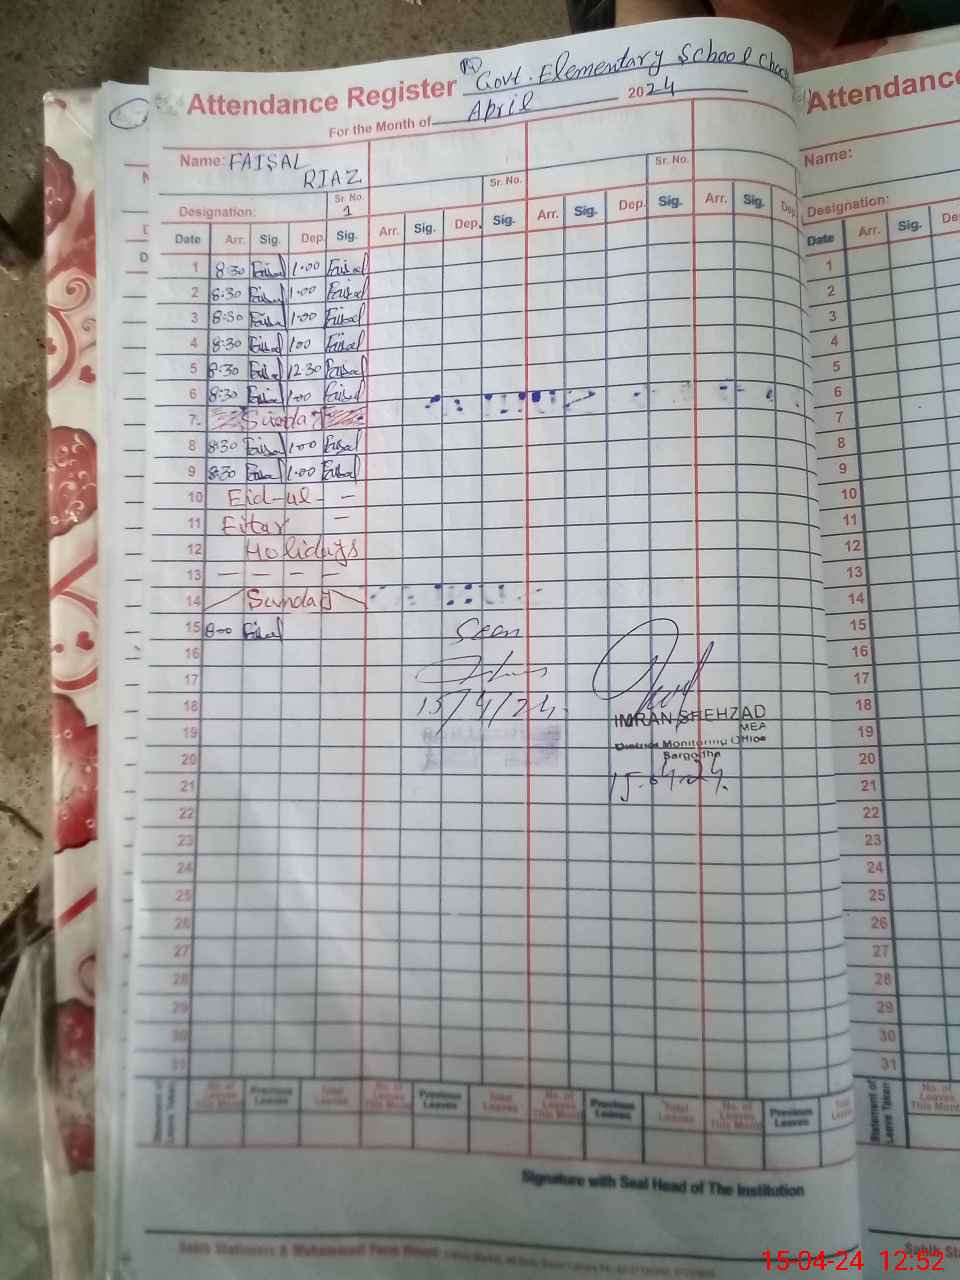 Attendance Register Govt. Elementary School
For the Month of April 2024
Name: FAISAL
RIAZ
Sr. No.
1
Designation:
Sr. No.
Sr. No.
Date Arr. Sig. Dep. Sig. Arr. Sig. Dep. Sig. Arr. Sig. Dep. Sig. Arr. Sig. Dep.
1 8:30 Faisal 1:00 Faisal
2 8:30 Faisal 1:00 Faisal
3 8:30 Faisal 1:00 Faisal
4 8:30 Faisal 1:00 Faisal
5 8:30 Faisal 12:30 Faisal
6 8:30 Faisal 1:00 Faisal
7 Sunday
8 8:30 Faisal 1:00 Faisal
9 8:30 Faisal 1:00 Faisal
10 Eid-ul -
11 Fitar -
12 Holidays
13 - - - -
14 Sunday
15 8:00 Faisal
Seen
16
17
18
15/4/24.
IMRAN SHEHZAD
MEA
District Monitoring Office
Sargodha
15-04-24.
19
20
21
22
23
24
25
26
27
28
29
30
31
Statement of Leave Taken
No. of Leaves This Month Previous Leaves Total Leaves No. of Leaves This Month Previous Leaves Total Leaves No. of Leaves This Month Previous Leaves Total Leaves No. of Leaves This Month Previous Leaves Total Leaves
Signature with Seal Head of The Institution
Attendance
Name:
Designation:
Date Arr. Sig.
1
2
3
4
5
6
7
8
9
10
11
12
13
14
15
16
17
18
19
20
21
22
23
24
25
26
27
28
29
30
31
Statement of Leave Taken
No. of Leaves This Month
15-04-24 12:52